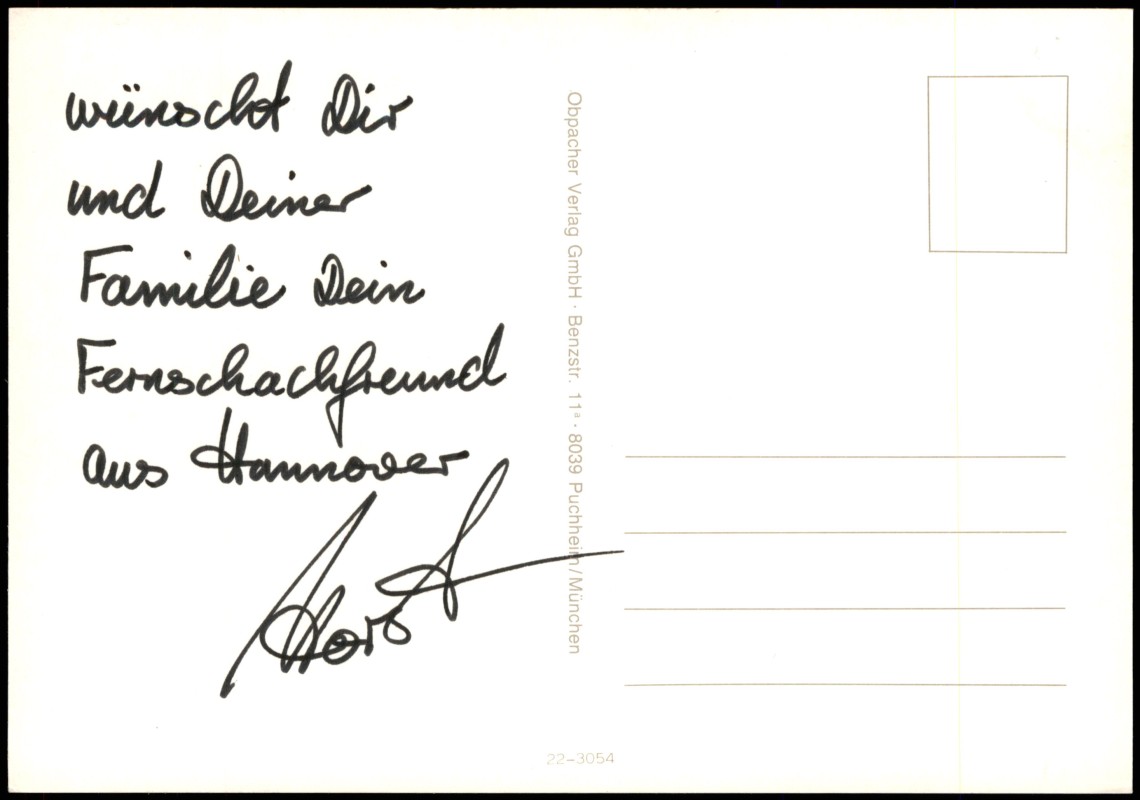 wünscht Dir
und Deiner
Familie Dein
Fernschachfreund
aus Hannover
Horst
Obpacher Verlag GmbH · Benzstr. 11ª · 8039 Puchheim/München
22-3054